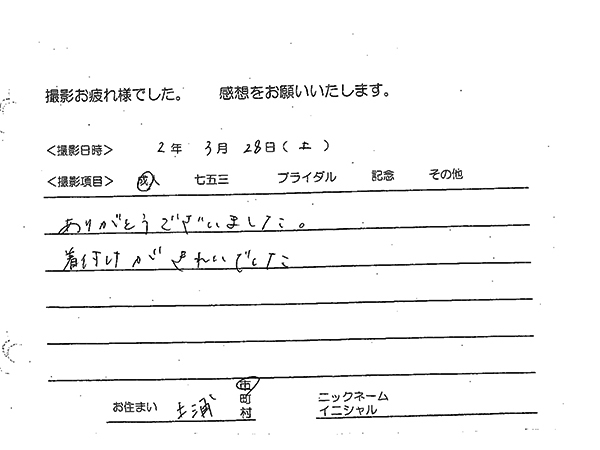 撮影お疲れ様でした。 感想をお願いいたします。
<撮影日時> 2年 3月 28日(土)
<撮影項目> 成人 七五三 ブライダル 記念 その他
ありがとうございました。
着付けがきれいでした
お住まい 土浦 市 町 村
ニックネーム
イニシャル